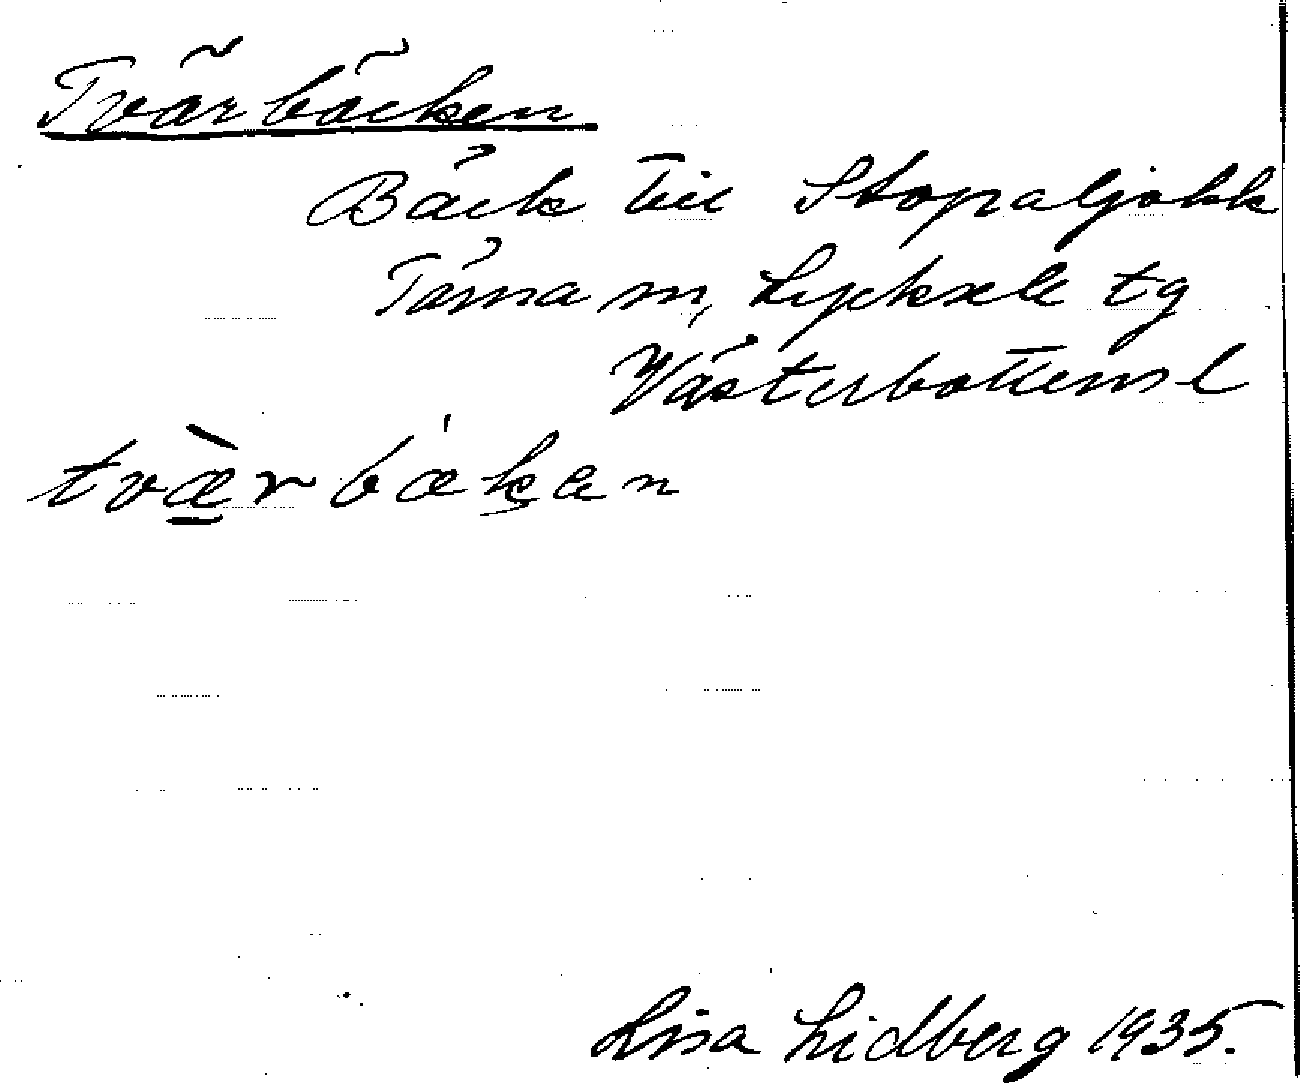 Tvärbäcken
Bäck till Stopaljokk
Tärna sn, Lycksele tg
Västerbottens l
tvæ̀r bækan
Lisa Lidberg 1935.